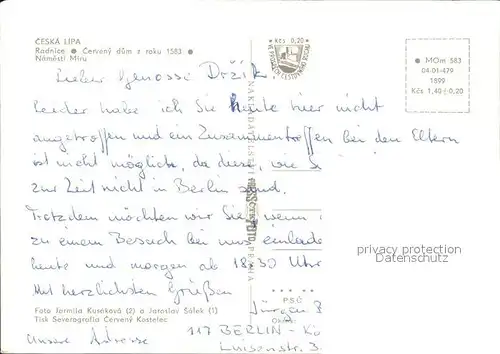 ČESKÁ LÍPA
Radnice ● Červený dům z roku 1583 ●
Náměstí Míru
Kčs 0,20
● MOm 583
04-01-479
1899
Kčs 1,40+0,20
Lieber Genosse Držík.
Leider habe ich Sie heute hier nicht
angetroffen und ein Zusammentreffen bei den Eltern
ist nicht möglich, da diese, wie
zur Zeit nicht in Berlin sind.
Trotzdem möchten wir Sie, wenn
zu einem Besuch bei uns einlade
heute und morgen ab 18.30 Uhr
Mit herzlichsten Grüßen
privacy protection
Datenschutz
PRESSFOTO
PRAHA
PSČ
Foto Jarmila Kusáková (2) a Jaroslav Sálek (1)
Tisk Severografia Červený Kostelec
Jürgen
Unsere Adresse
117 BERLIN - Kö
Luisenstr.